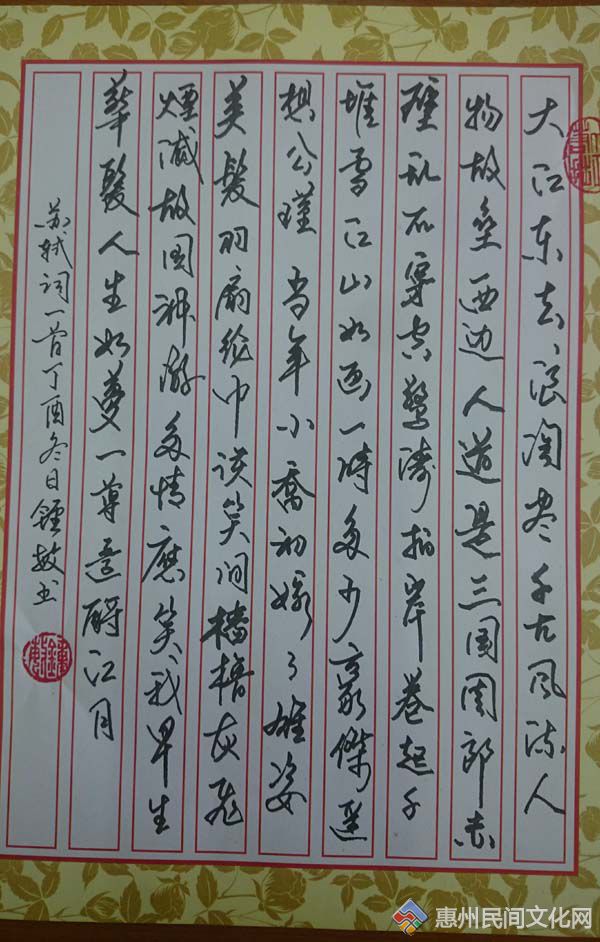 大江东去浪淘尽千古风流人
物故垒西边人道是三国周郎赤
壁乱石穿空驚涛拍岸卷起千
堆雪江山如画一时多少豪傑遥
想公瑾当年小喬初嫁了雄姿
英髮羽扇纶巾谈笑间樯橹灰飛
煙滅故国神游多情應笑我早生
華髮人生如夢一尊還酹江月
苏轼词一首丁酉冬日鍾敏书
惠州民间文化网